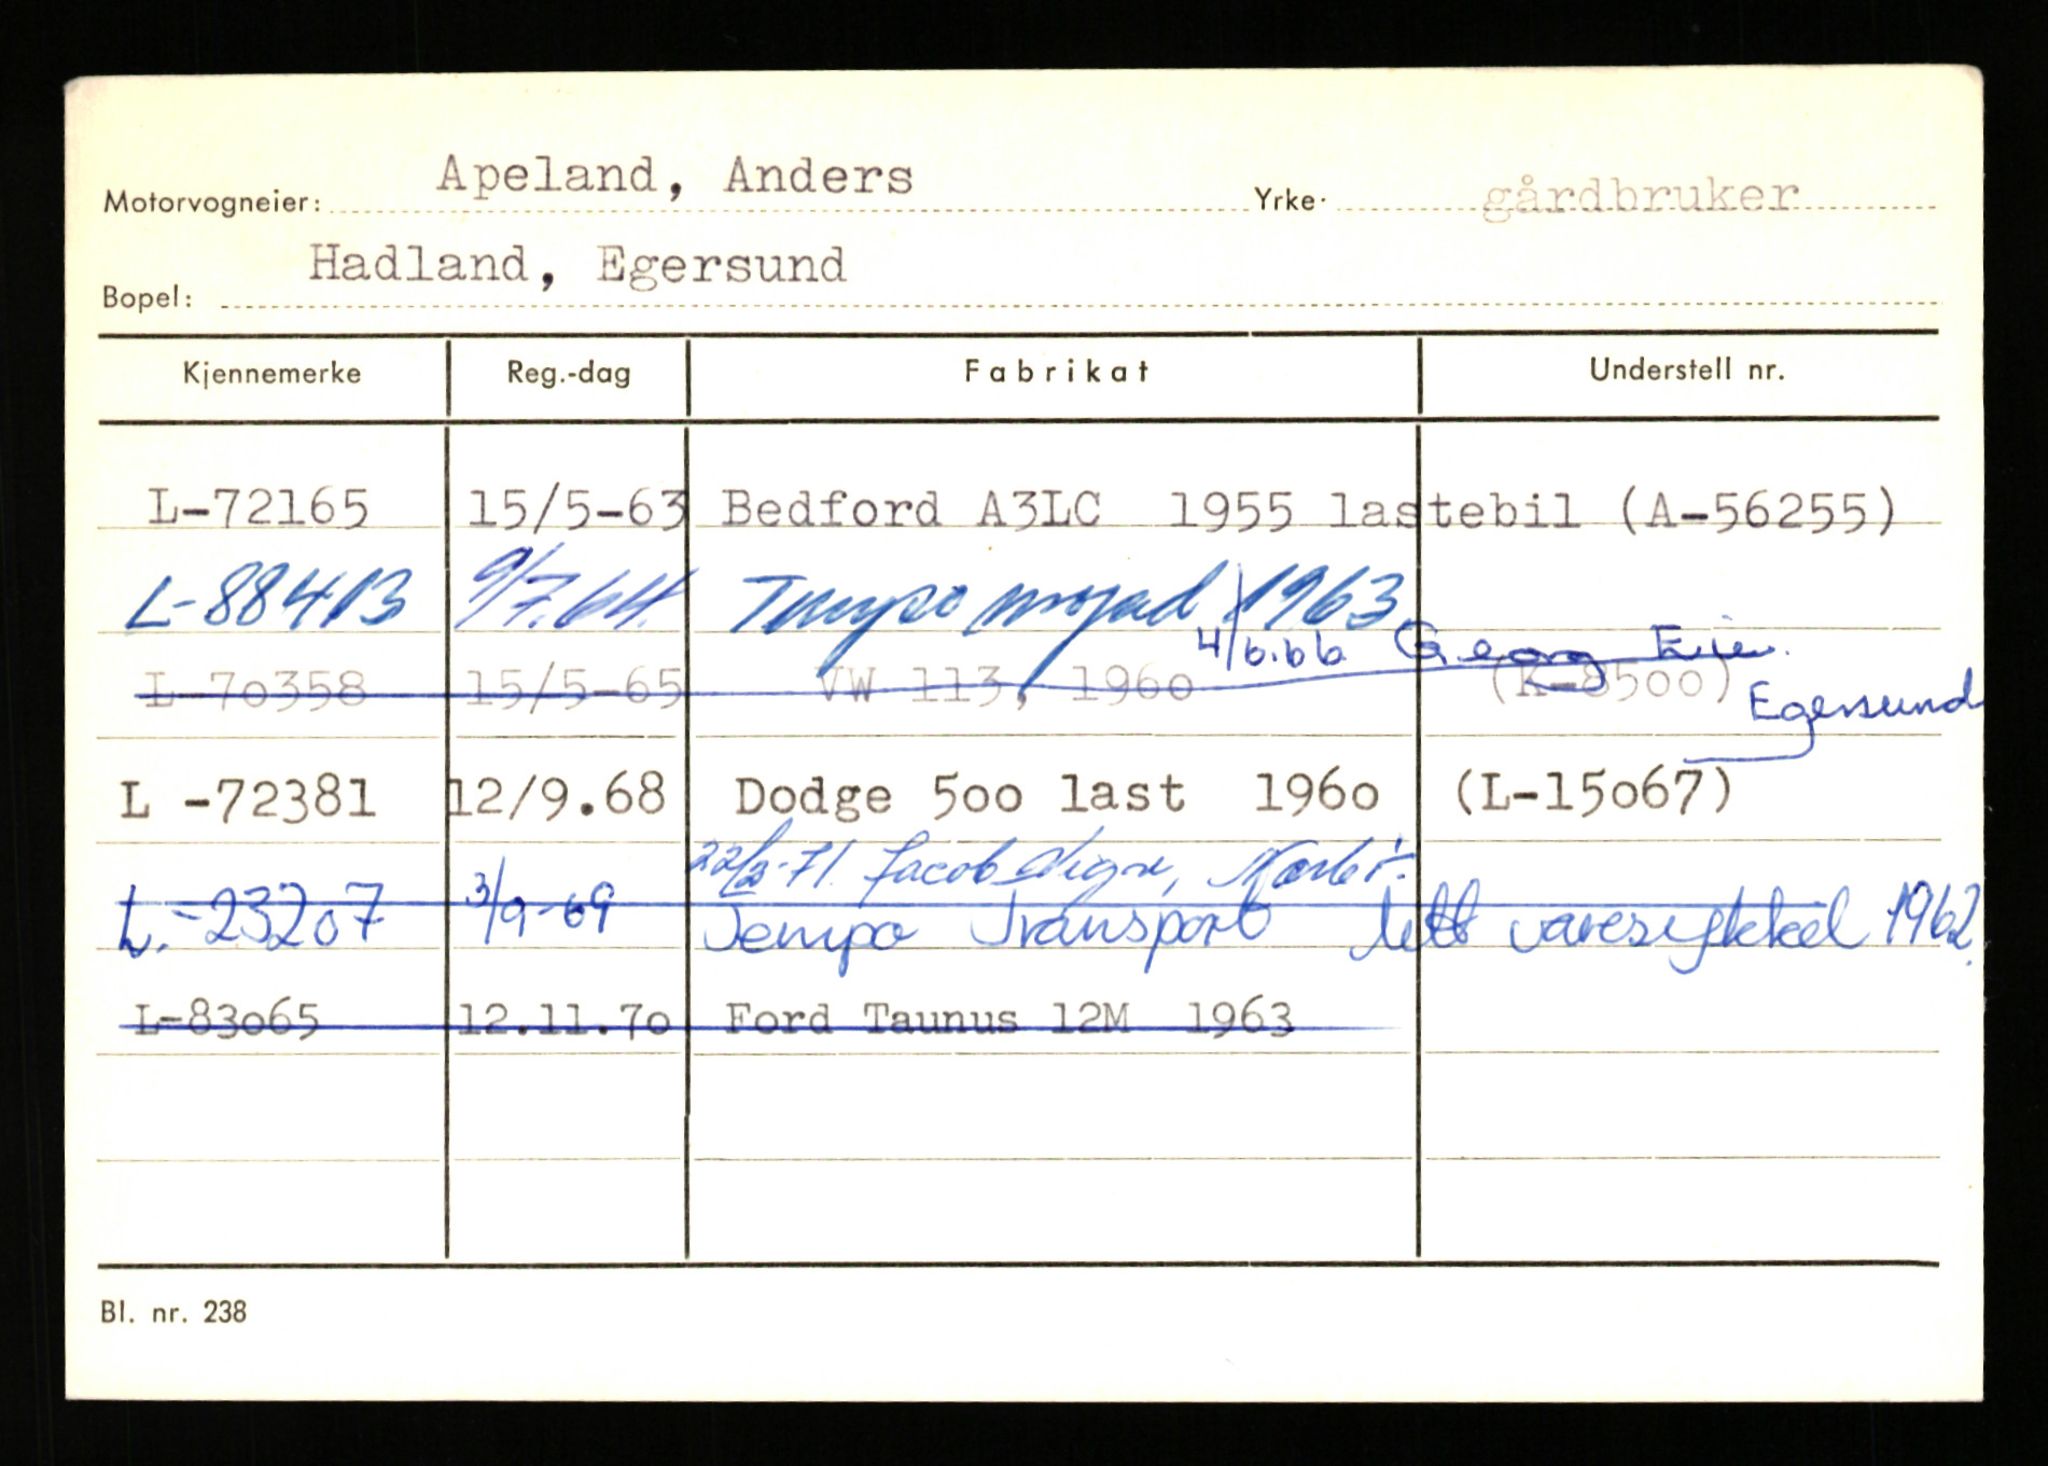 Motorvogneier: Apeland, Anders Yrke: gårdbruker
Bopel: Hadland, Egersund
Kjennemerke Reg.-dag Fabrikat Understell nr.
L-72165 15/5-63 Bedford A3LC 1955 lastebil (A-56255)
L-88413 9/7.64. Tempo moped 1963
4/6.66 Georg Eie.
L-70358 15/5-65 VW 113, 1960 (K-8500)
Egersund
L -72381 12/9.68 Dodge 500 last 1960 (L-15067)
71. Jacob
L.-23207 3/9-69 Tempo Transport lett varesykkel 1962.
L-83065 12.11.70 Ford Taunus 12M 1963
Bl. nr. 238